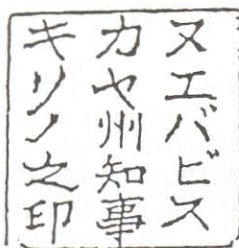 ヌエバビス
カヤ州知事
キリノ之印